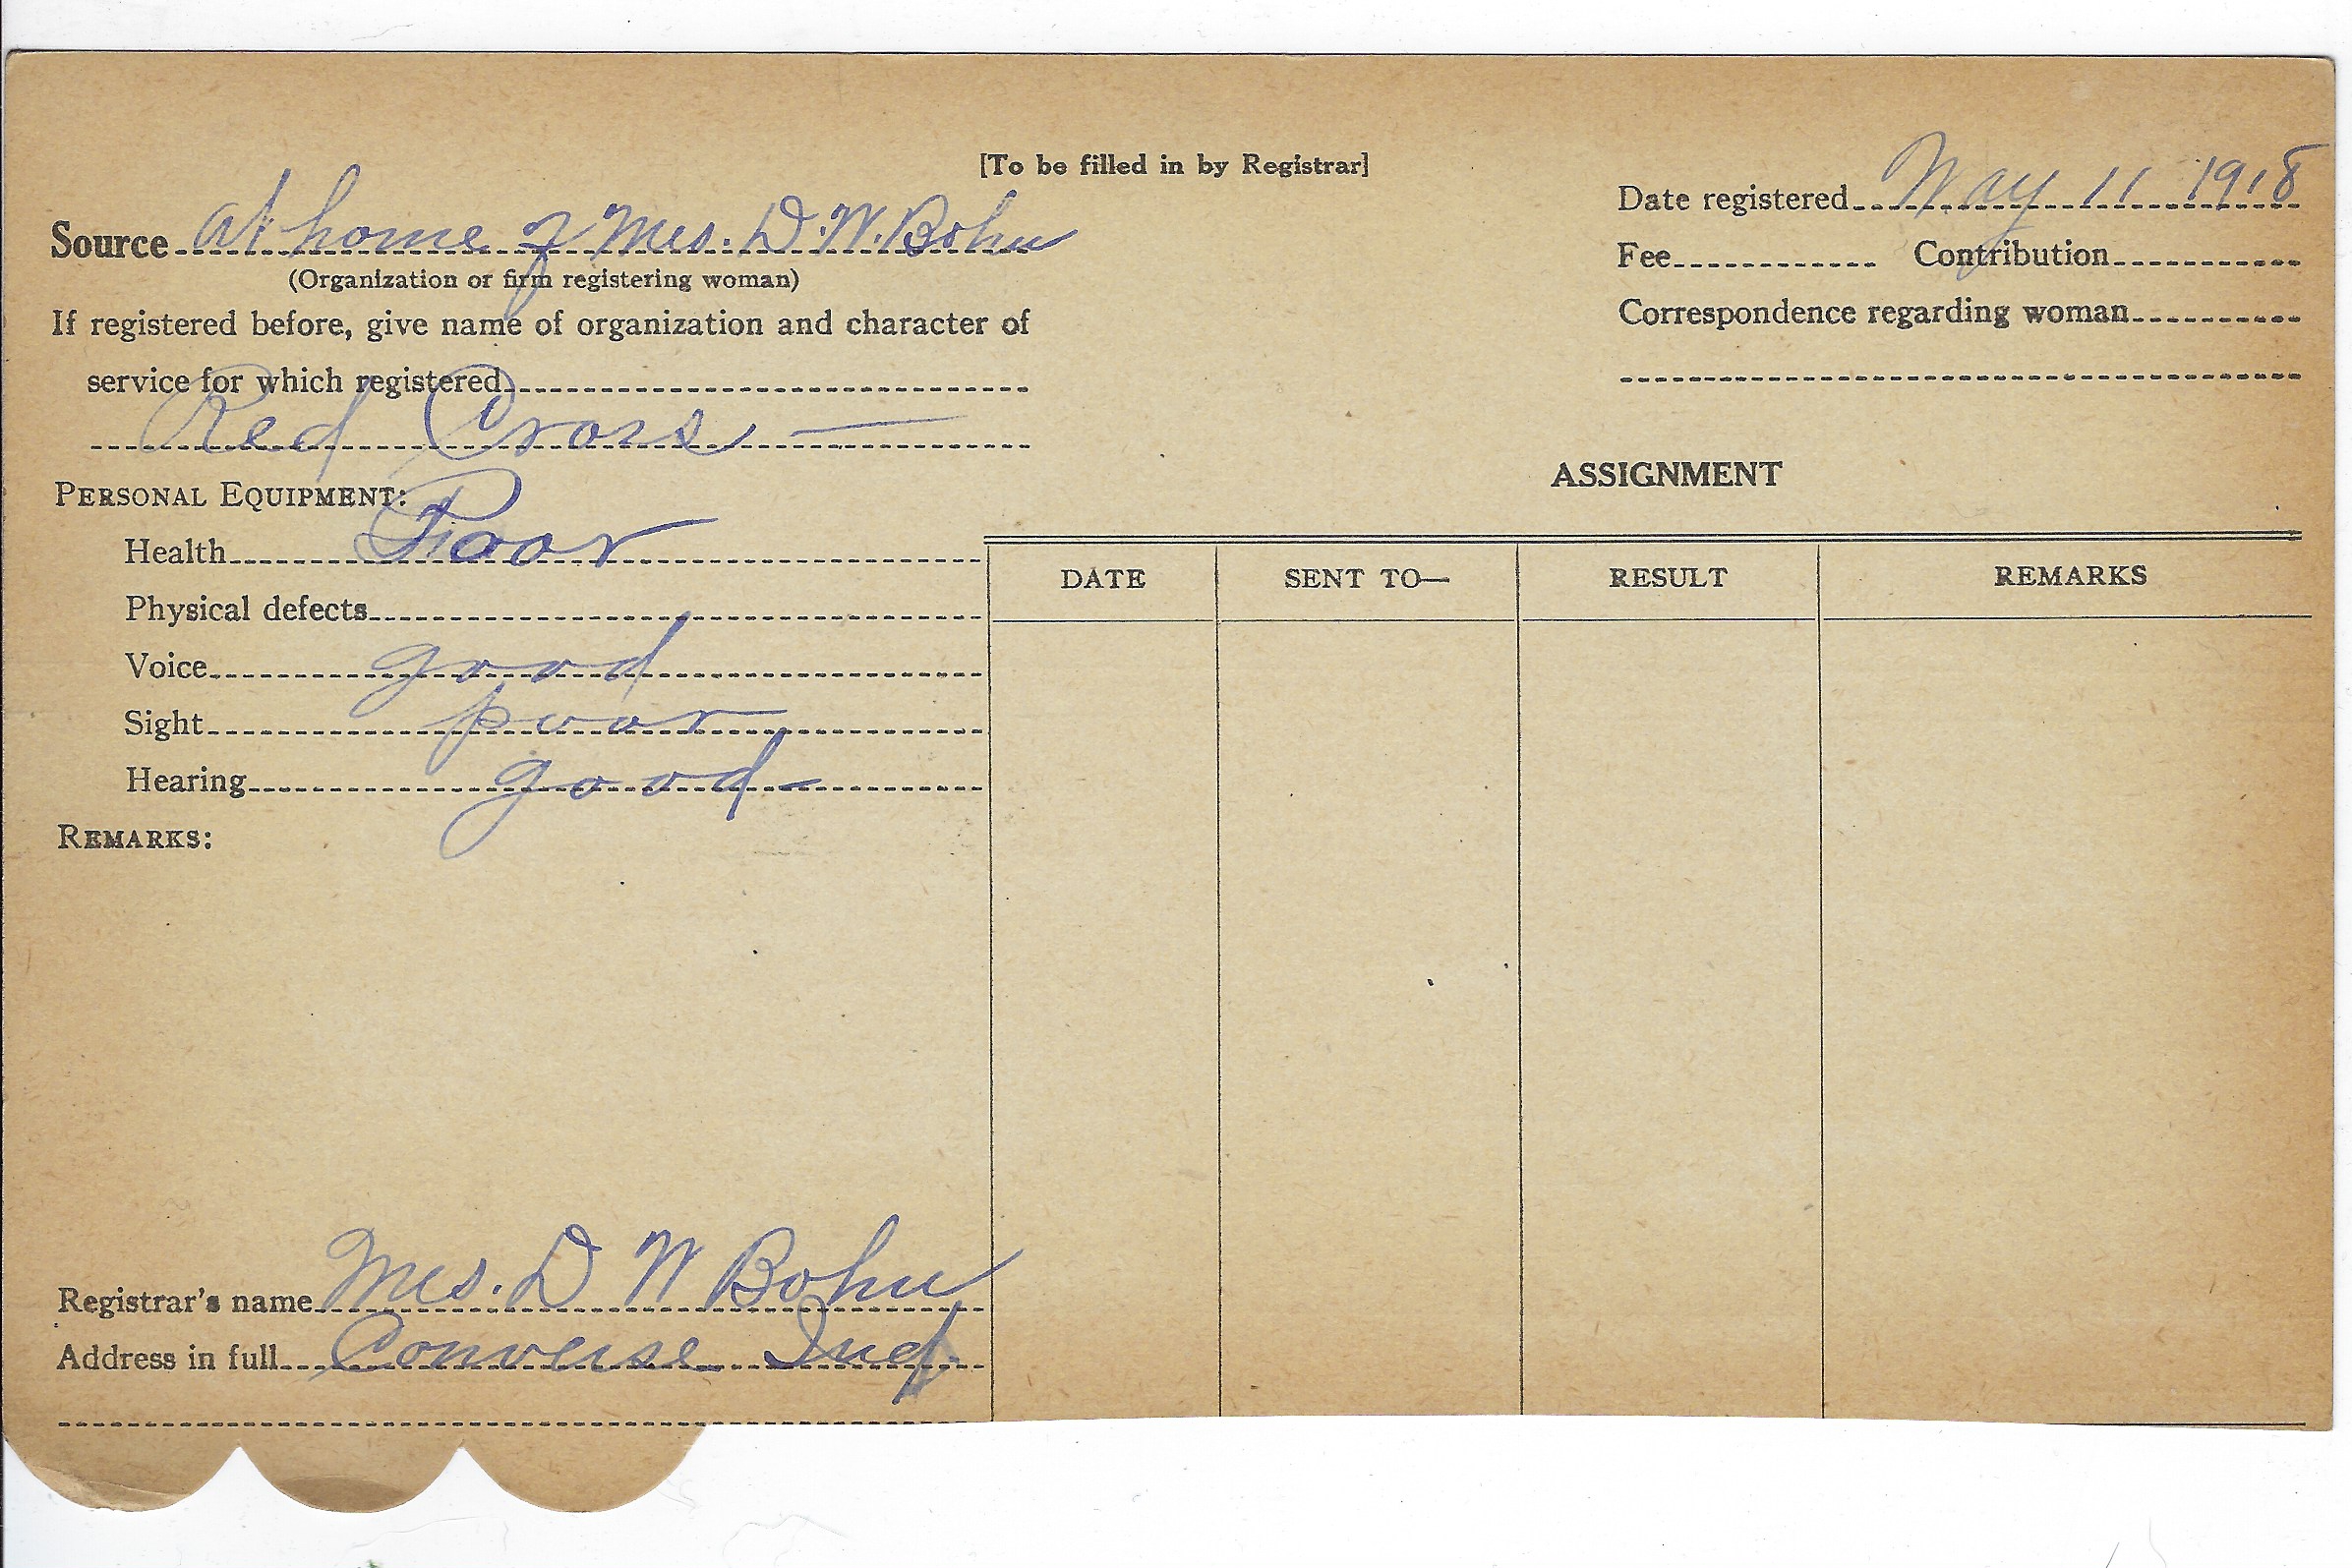 [To be filled in by Registrar]
Source At home of Mrs. D. W. Bohn
(Organization or firm registering woman)
If registered before, give name of organization and character of
service for which registered
Red Cross —
Date registered May 11 1918
Fee Contribution
Correspondence regarding woman
PERSONAL EQUIPMENT:
Health Poor
Physical defects
Voice good
Sight poor
Hearing good
REMARKS:
Registrar's name Mrs. D W Bohn
Address in full Converse Ind
ASSIGNMENT
DATE SENT TO— RESULT REMARKS